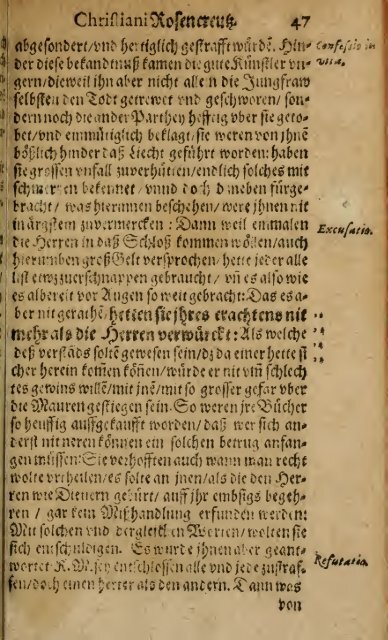 Christiani Rosencreutz. 47
abgesondert/vnd hertiglich gestrafft würdẽ. Hin-
der diese bekandtnuß kamen die gute Künstler vn-
Confessio in
gern/dieweil ihn aber nicht allein die Jungfraw
selbsten den Todt getrewet vnd geschworen/son-
dern noch die ander Parthey hefftig vber sie geto-
bet/vnd einmütiglich beklagt/sie weren von jhnẽ
bößlich hinder daß Liecht geführt worden: haben
sie grossen vnfall zuverhütten/endlich solches mit
schmertzen bekennet/vnnd doch daneben fürge-
bracht/was hierinnen beschehen/were jhnen nit
im ärgstem zuvermercken: Dann weil einmalen
Excusatio.
die Herren in daß Schloß kommen wöllen/auch
hierumben groß Gelt versprochen/hette jeder alle
list etwz zuerschnappen gebraucht/vñ es also wie
es albereit vor Augen so weit gebracht: Das es a-
ber nit gerathẽ/hetten sie jhres erachtens nit
mehr als die Herren verwürckt: Als welche
deß verstãds soltẽ gewesen sein/dz da einer hette si-
cher herein komẽ könẽ/würde er nit vm̃ schlech
tes gewins willẽ/mit jnẽ/mit so grosser gefar vber
die Mauren gestiegen sein. So weren jre Bücher
so heuffig auffgekaufft worden/daß wer sich an-
derst nit neren können ein solchen betrug anfan-
gen müssen: Sie verhofften auch wann man recht
wolte vrtheilen/es solte an jnen/als die den Her-
ren wie Dienern gebürt/auff jhr embsigs begeh-
ren/gar kein Mißhandlung erfunden werden:
Mit solchen vnd dergleichen Worten/wolten sie
sich entschuldigen. Es wurde ihnen aber geant-
wortet K. May. entschlossen alle vnd jede zustraf-
Refutatio.
fen/doch einen herter als den andern. Dann was
von